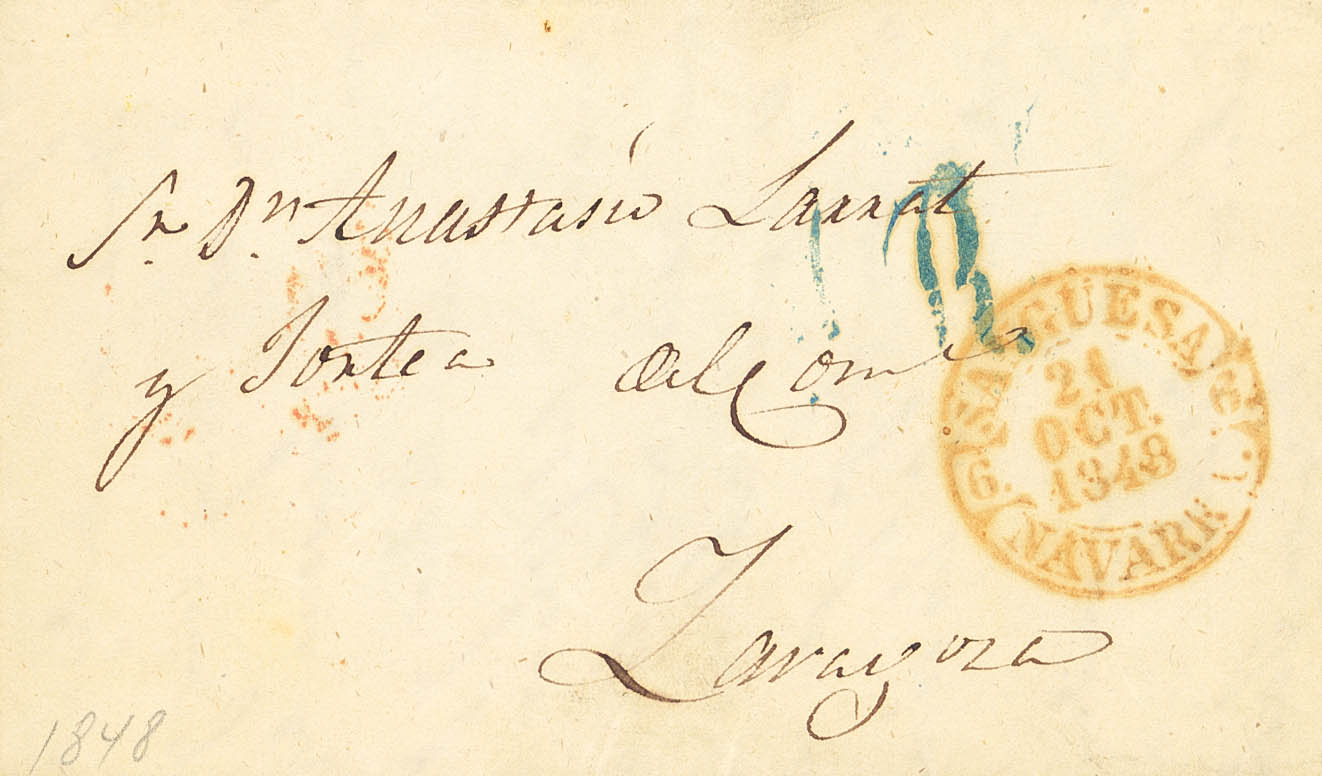 Sr. Dn. Anastasio Larrat
y Tortea del Com
Zaragoza
SANGUESA
21
OCT.
1848
NAVARR
6.
1848